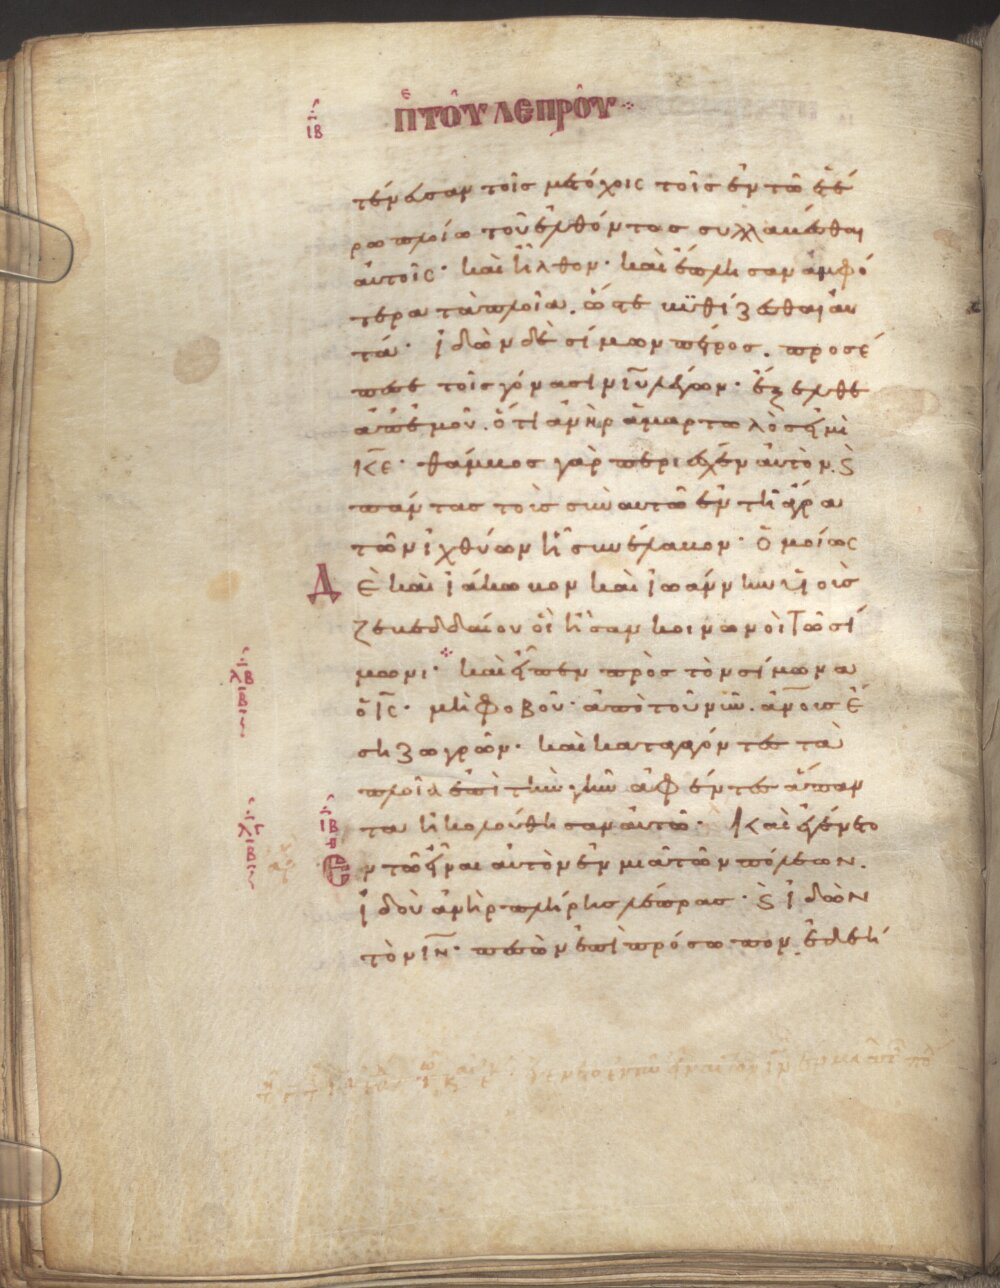 ιβ πε τοῦ λεπροῦ
τένευσαν τοῖς μετόχοις τοῖς ἐν τῶ ἑτέ
ρω πλοίω τοῦ ἐλθόντας συλλαβέσθαι
αὐτοῖς· καὶ ἦλθον· καὶ ἔπλησαν ἀμφό
τερα τὰ πλοῖα. ὥστε βυθίζεσθαι αυ
τά· ἰδὼν δὲ σίμων πέτρος. προσέ
πεσε τοῖς γόνασιν ιυ λέγων· ἔξελθε
ἀπ' ἐμοῦ. ὅτι ἀνὴρ ἁμαρτωλὸς εἰμὶ
κε· θάμβος γὰρ περιέσχεν αὐτὸν. ϗ
πάντας τοὺς σὺν αὐτῶ ἐν τῆ ἄγρα
τῶν ἰχθύων ἧ συνέλαβον· ὁμοίως
Δὲ καὶ ἰάκωβον καὶ ἰωάννην υἱοὺς
ζεβεδδαίου οἳ ἦσαν κοινωνοὶ τῶ σί
μωνι· καὶ εἶπεν πρὸς τὸν σίμωνα
ὁ ις· μὴ φοβοῦ· ἀπὸ τοῦ νῦν. ανους ἔ
ση ζωγρῶν· καὶ καταγαγόντες τὰ
πλοῖα ἐπὶ τὴν γῆν ἀφέντες ἅπαν
τα ἠκολούθησαν αὐτῶ· Καὶ ἐγένετο
Ἐν τῶ εἶναι αὐτὸν ἐν μιᾶ τῶν πόλεων.
ἰδοὺ ἀνὴρ πλήρης λέπρας· ϗ ἰδὼν
τὸν ιν· πεσὼν ἐπὶ πρόσωπον. ἐδεή
ιβ